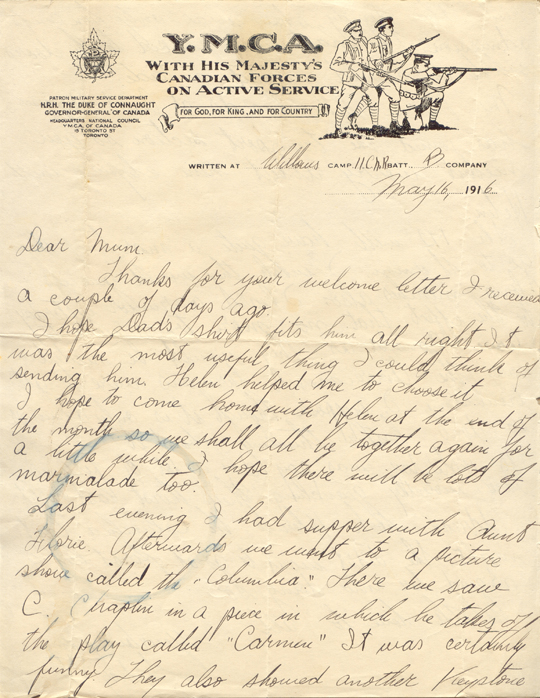 Y.M.C.A.
WITH HIS MAJESTY'S
CANADIAN FORCES
ON ACTIVE SERVICE
FOR GOD, FOR KING, AND FOR COUNTRY
PATRON MILITARY SERVICE DEPARTMENT
H.R.H. THE DUKE OF CONNAUGHT
GOVERNOR-GENERAL OF CANADA
HEADQUARTERS NATIONAL COUNCIL
Y.M.C.A. OF CANADA
15 TORONTO ST
TORONTO
WRITTEN AT Willows CAMP. 11.C.M.R BATT. B COMPANY
May 16, 1916.
Dear Mum
Thanks for your welcome letter I received
a couple of days ago.
I hope Dad's shirt fits him all right It
was the most useful thing I could think of
sending him. Helen helped me to choose it
I hope to come home with Helen at the end of
the month so we shall all be together again for
a little while I hope there will be lots of
marmalade too.
Last evening I had supper with Aunt
Florie. Afterwards we went to a picture
show called the "Columbia". There we saw
C. Chaplin in a piece in which he takes off
the play called "Carmen" It was certainly
funny They also showed another Keystone